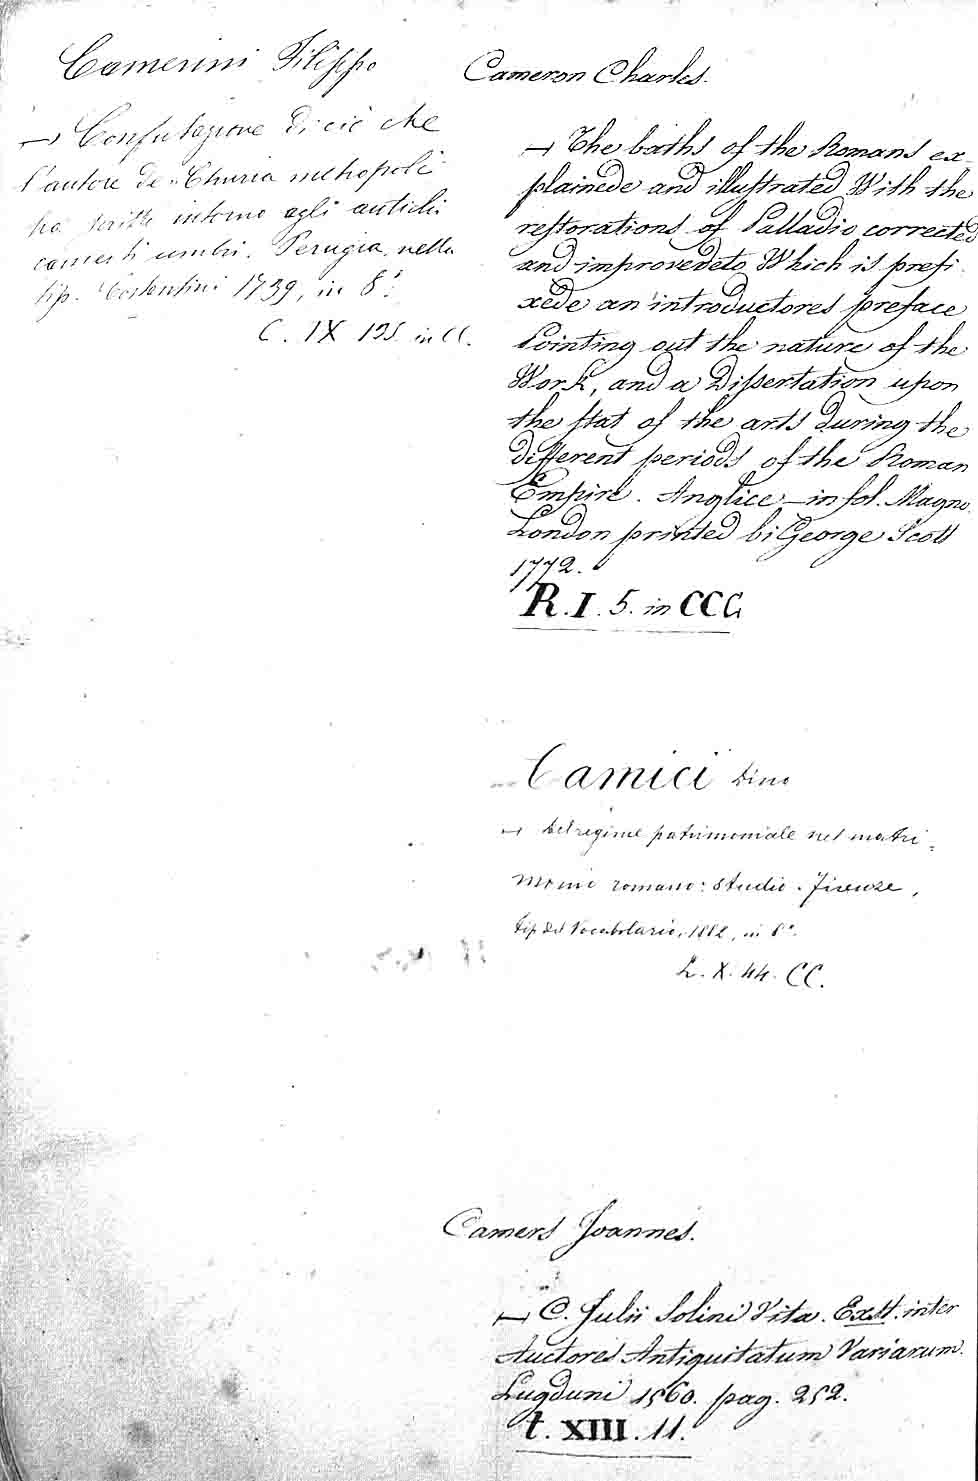 Camerini Filippo
→ Confutazione di ciò che
l'autore de "Churia metropoli
ha scritto intorno agli antichi
camerti umbri. Perugia, nella
tip. Costantini 1739, in 8.°
C. IX 125 in CC.
Cameron Charles.
→ The baths of the Romans ex-
plainede and illustrated With the
restorations of Palladio corrected
and improvedeto Which is prefi-
xede an introductores preface
Pointing out the nature of the
Work, and a Dissertation upon
the stat of the arts during the
different periods of the Roman
Empire. Anglice in fol. Magno
London printed bi George Scott
1772.
R. I. 5. in CCC
Camici Dino
→ Del regime patrimoniale nel matri=
monio romano: studio. Firenze,
tip. del Vocabolario, 1882, in 8°.
L. X. 44. CC.
Camers Joannes.
→ C. Julii Solini Vita. Extt. inter
Auctores Antiquitatum Variarum.
Lugduni 1560. pag. 252.
t. XIII. 11.